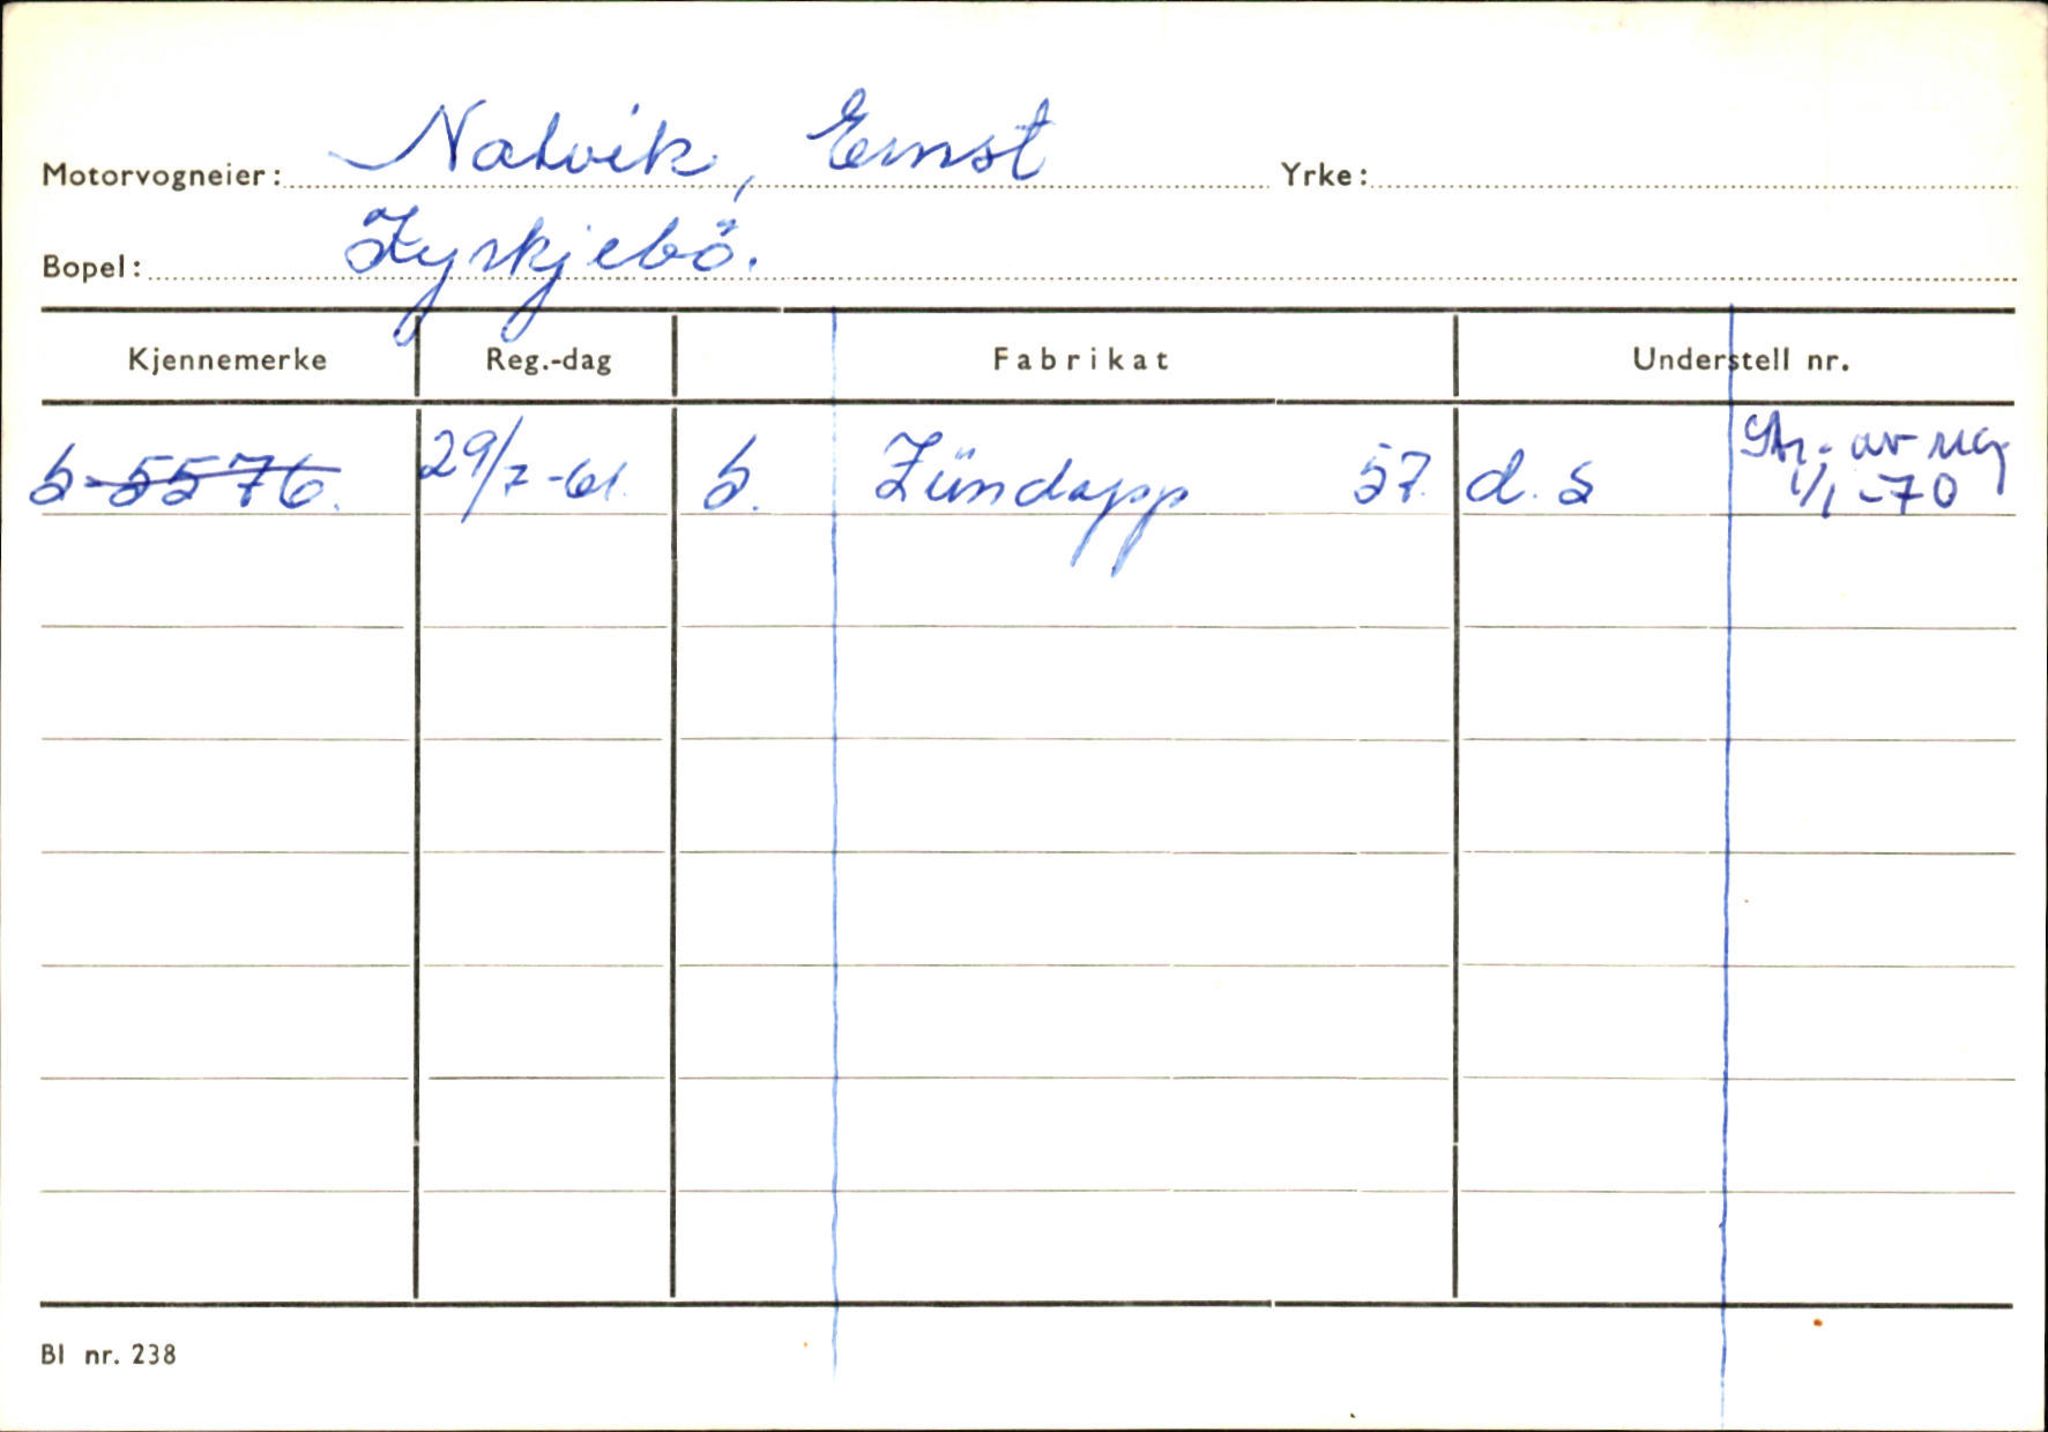 Motorvogneier: Natvik, Ernst Yrke:
Bopel: Fyrskjebö.
Kjennemerke Reg.-dag Fabrikat Understell nr.
S-5576. 29/7-61. S. Zündapp 57. d.s Str. av reg
1/1-70
Bl nr. 238